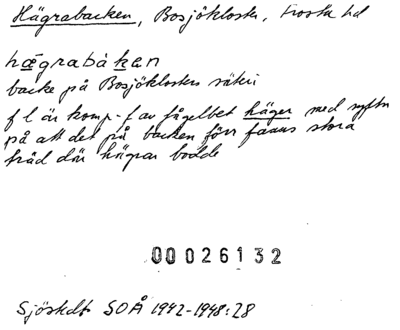 Hägrabacken, Bosjökloster, Frosta hd
hägrabákan
backe på Bosjöklosters säteri
f l är komp.-f av fågelbet häger med syftn
på att det på backen förr fanns stora
träd där hägrar bodde
00026132
Sjöstedt SOÅ 1942-1948:28